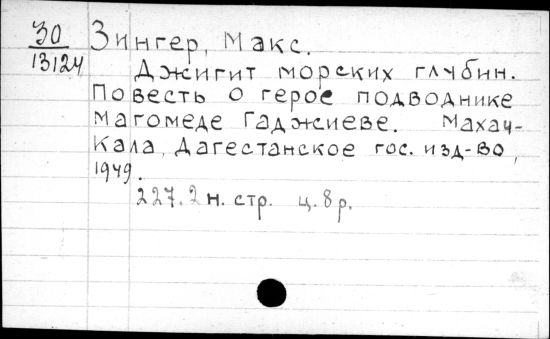 30
13124
Зингер, Макс.
Джигит морских глубин.
Повесть о герое подводнике
Магомеде Гаджиеве. Махач-
Кала, Дагестанское гос. изд-во,
1949.
227.2 н. стр. ц. 8 р.